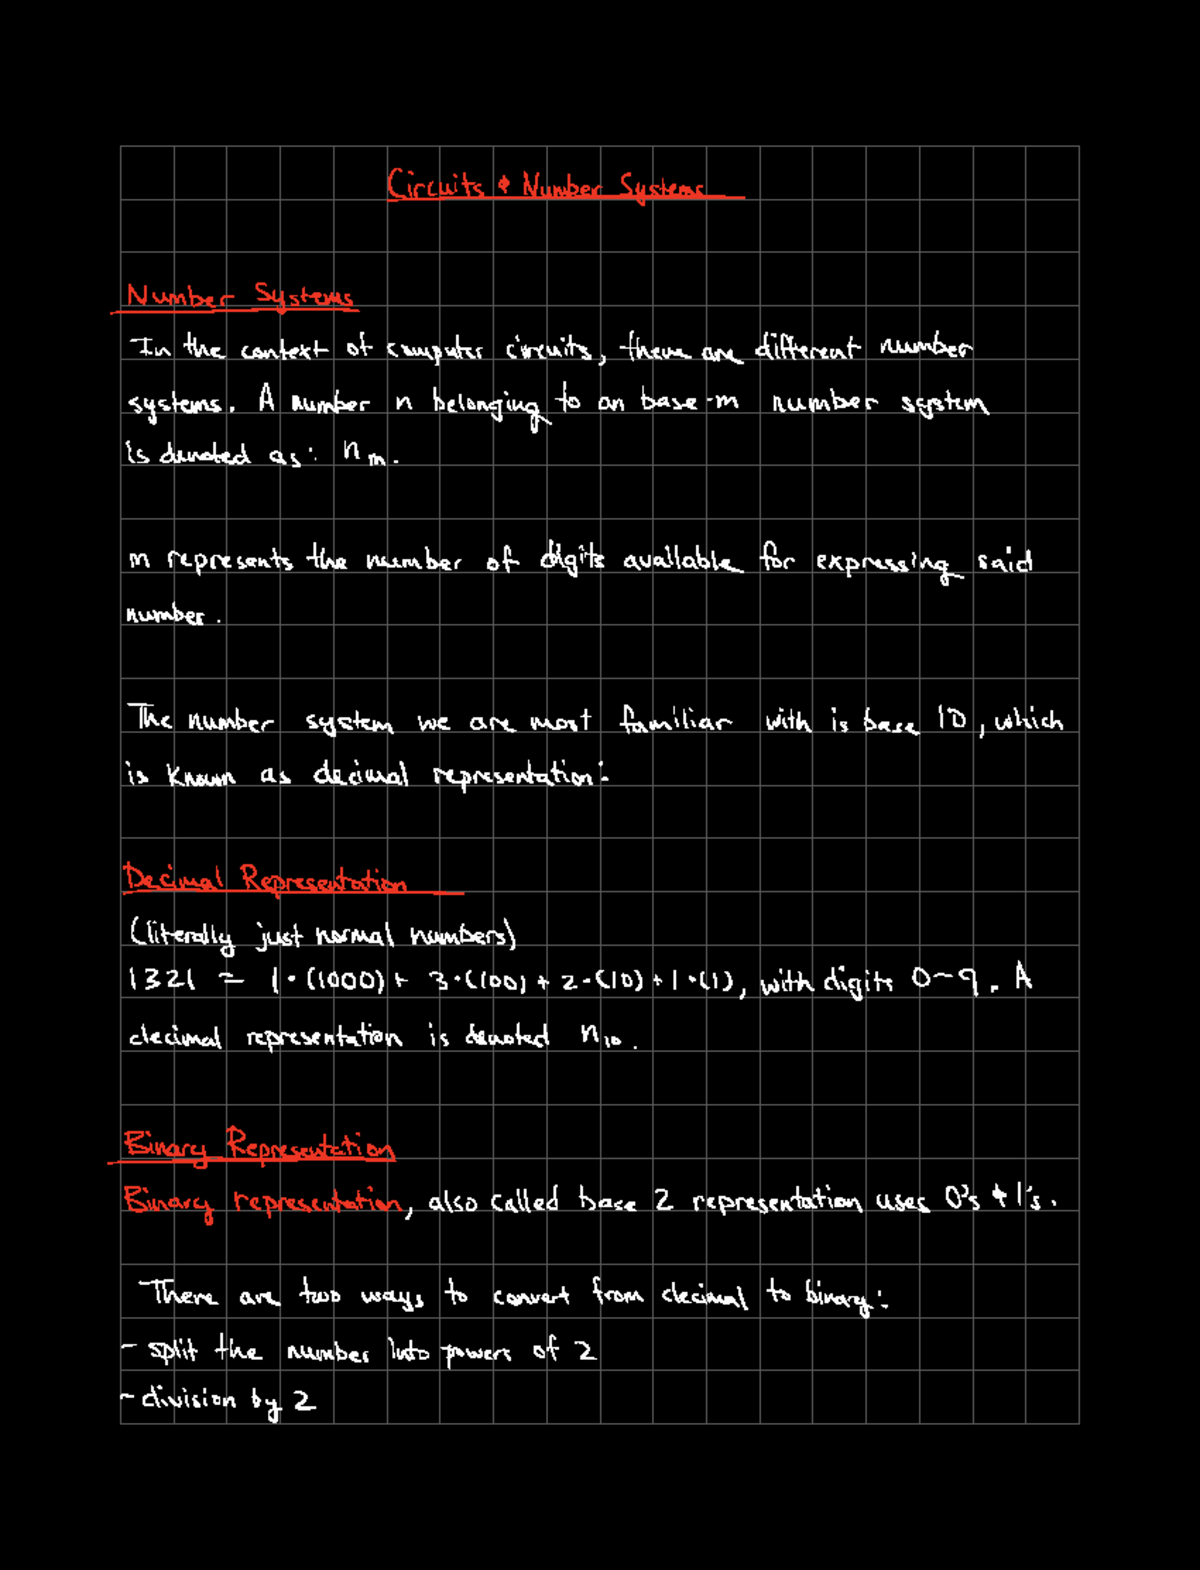 Circuits & Number Systems
Number Systems
In the context of computer circuits, there are different number
systems. A number n belonging to an base-m number system
is denoted as: nₘ.
m represents the number of digits available for expressing said
number.
The number system we are most familiar with is base 10, which
is known as decimal representation:
Decimal Representation
(literally just normal numbers)
1321 = 1·(1000) + 3·(100) + 2·(10) + 1·(1), with digits 0-9. A
decimal representation is denoted n₁₀.
Binary Representation
Binary representation, also called base 2 representation uses 0's & 1's.
There are two ways to convert from decimal to binary:
- split the number into powers of 2
- division by 2